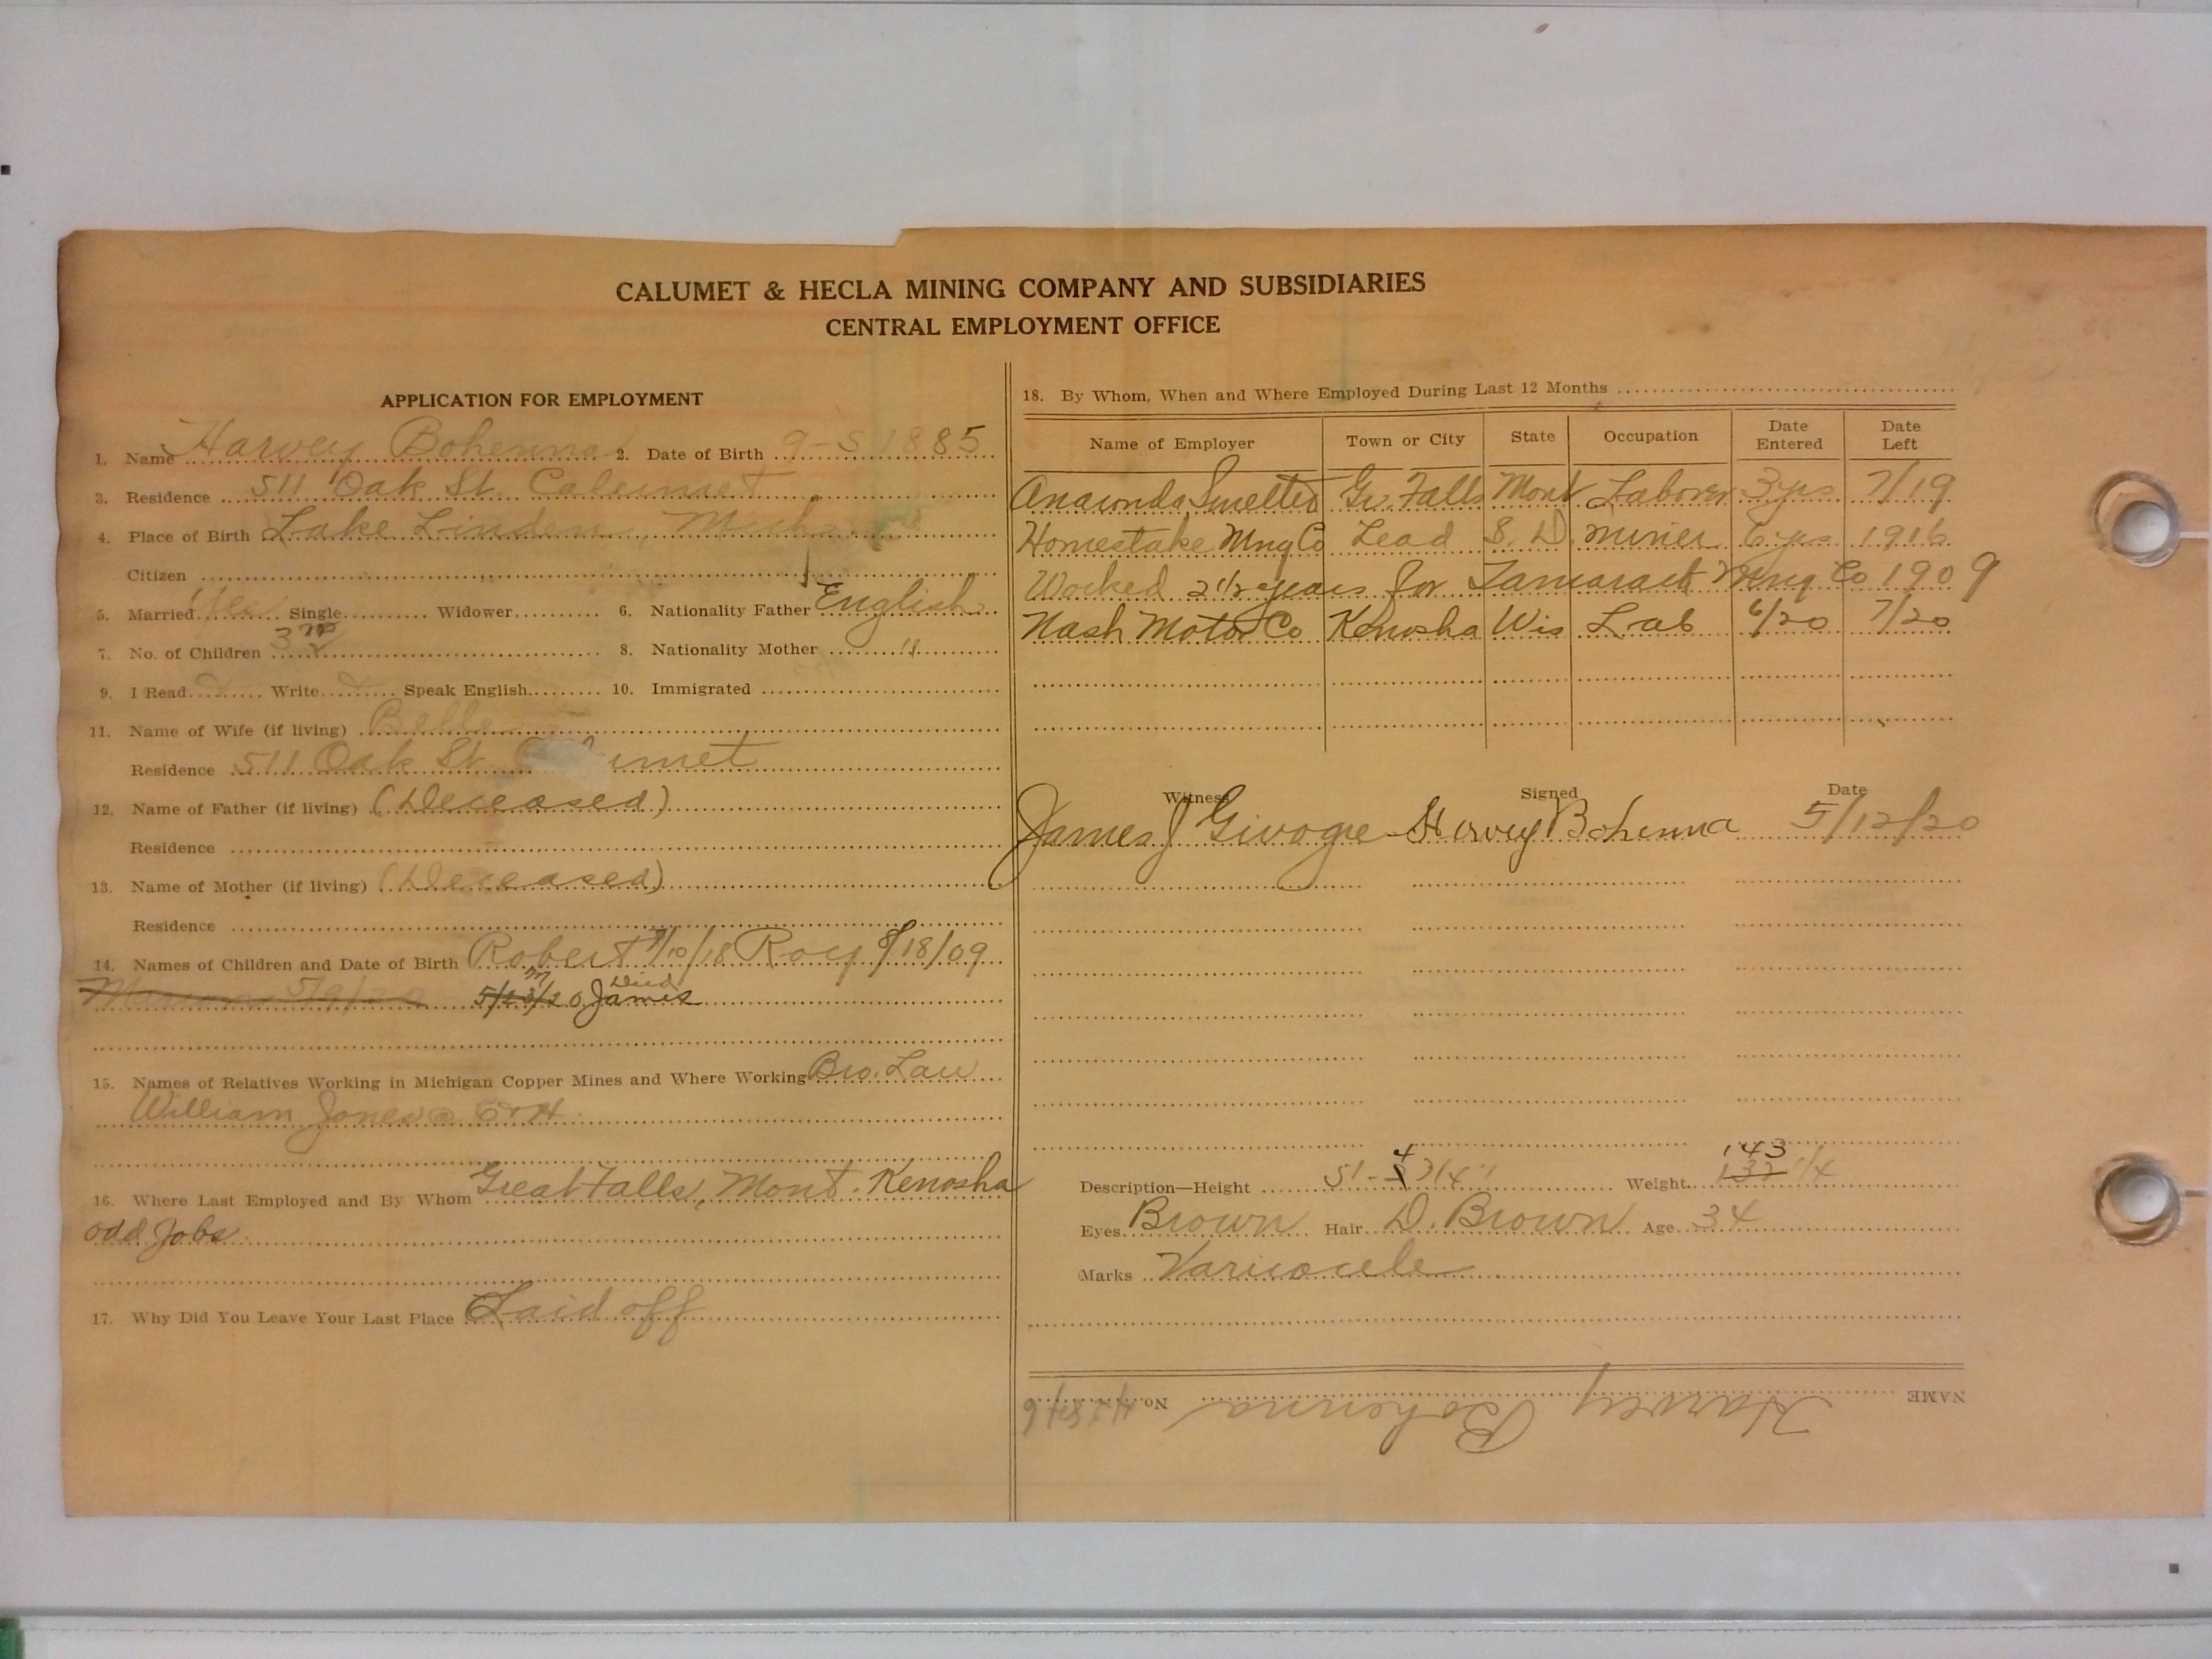 CALUMET & HECLA MINING COMPANY AND SUBSIDIARIES
CENTRAL EMPLOYMENT OFFICE
APPLICATION FOR EMPLOYMENT
1. Name Harvey Bohenna 2. Date of Birth 9-5 1885
3. Residence 511 Oak St. Calumet
4. Place of Birth Lake Linden, Mich
Citizen
5. Married Yes Single Widower 6. Nationality Father English
7. No. of Children 3 8. Nationality Mother "
9. I Read Write Speak English 10. Immigrated
11. Name of Wife (if living) Belle
Residence 511 Oak St. umet
12. Name of Father (if living) (Deceased)
Residence
13. Name of Mother (if living) (Deceased)
Residence
14. Names of Children and Date of Birth Robert /10/18 Roy 8/18/09
Died
5/23/20 James
15. Names of Relatives Working in Michigan Copper Mines and Where Working Bro. Law
William Jones C & H
16. Where Last Employed and By Whom Great Falls, Mont. Kenosha
odd Jobs
17. Why Did You Leave Your Last Place Laid off
18. By Whom, When and Where Employed During Last 12 Months
Name of Employer Town or City State Occupation Date Entered Date Left
Anaconda Smelter Gr. Falls Mont Laborer 3 yrs 7/19
Homestake Mng Co Lead S. D. miner 6 yrs 1916
Worked 2 1/2 years for Tamarack Mng Co 1909
Nash Motor Co Kenosha Wis Lab 6/20 7/20
Witness Signed Date
James J Harvey Bohenna 5/12/20
4 143
Description—Height 5'- 3/4" Weight 132 1/4
Eyes Brown Hair D. Brown Age 34
Marks Varicocele
NAME Harvey Bohenna No.